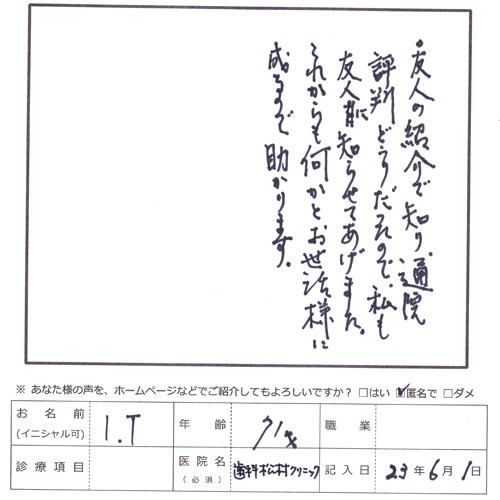 ・友人の紹介で知り、通院
評判どうりだったので、私も
友人に知らせてあげました。
これからも何かとお世話様に
成るので助かります。
※ あなた様の声を、ホームページなどでご紹介してもよろしいですか? □はい ☑匿名で □ダメ
お名前 (イニシャル可) I.T 年齢 71才 職業
診療項目 医院名 (必須) 歯科松村クリニック 記入日 23年6月1日